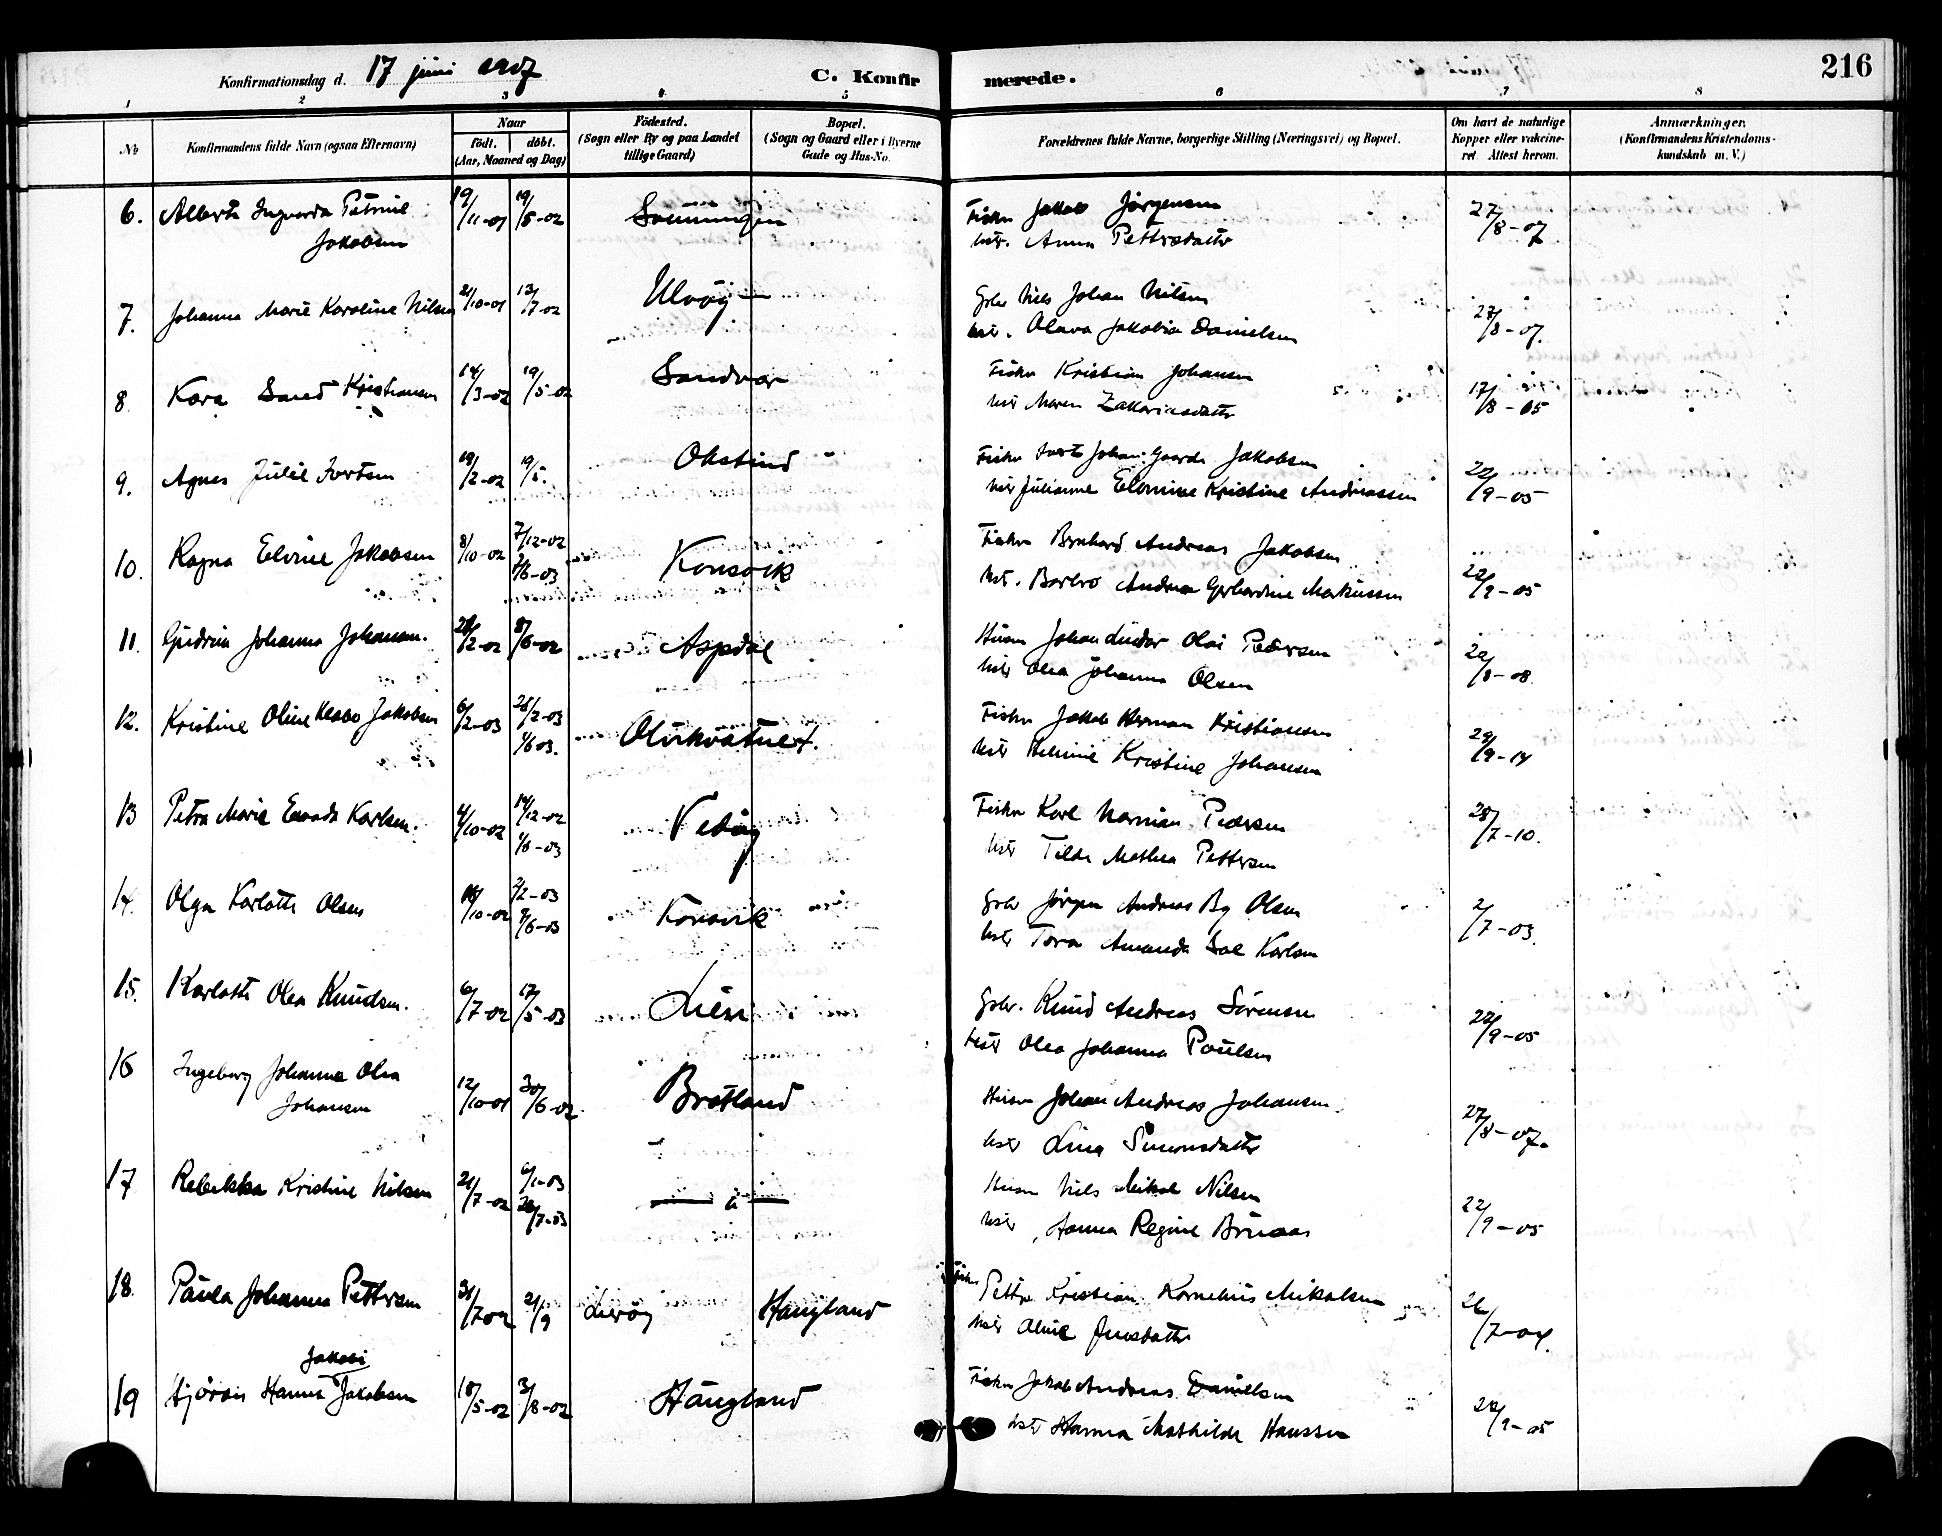 216
Konfirmationsdag d. 17 juni C. Konfirmerede.
1 2 3 4 5 6 7 8
No
Konfirmandens fulde Navn (ogsaa Efternavn)
Naar
födt. döbt.
(Aar, Maaned og Dag)
Födested.
(Sogn eller By og paa Landet
tillige Gaard)
Bopæl.
(Sogn og Gaard eller i Byerne
Gade og Hus-No.
Forældrenes fulde Navne, borgerlige Stilling (Næringsvei) og Bopæl.
Om havt de naturlige
Kopper eller vakcine-
ret Attest herom.
Anmærkninger.
(Konfirmandens Kristendoms-
kundskab m. V.)
6. Petrine 19/11-01 19/5-02 Fisker Jakob Jörgensen 27/8-07
Jakobsen hstr. Anna Pettersdatter
7. Johanna Marie Karoline Nilsen 21/10-01 13/7-02 Gbr Nils Johan Nilsen 27/8-07.
hstr. Olava Jakobia Danielsen
8. Kristiansen 14/3-02 19/5-02 Sandvær Fisker Kristian Johansen 17/8-05
hstr Maren Zakariasdatter
9. Agnes Julie 19/2-02 19/5. Okstind Fisker Johan Jakobsen 22/9-05
hstr Julianne Kristine Andreassen
10. Ragna Elvine Jakobsen 8/10-02 7/12-02 Konsvik Fisker Bernhard Andreas Jakobsen 22/9-05
1/6-03 hstr. Barbro Andrea Gerhardine Markussen
11. Gudrun Johanna Johansen. 2-02 8/6-02 Aspdal Husm Johan Olai Pedersen 8-08.
hstr Olea Johanna Olsen
12. Kristine Oline Jakobsen 6/2-03 28/2-03 Fisker Jakob Herman Kristiansen 29/9-14
1/6 03. hstr Kristine Johansen
13 Petra Marie Karlsen. 4/10-02 14/12-02 Fisker Karl Norman Pedersen 28/7-10.
1/6-03 hstr Tilda Mathea Pettersen
14. Olga Karlotte Olsen 10-02 2/2-03 Konsvik Gbr Jörgen Andreas By Olsen 2/7-03.
6-03 hstr Tora Amanda Karlsen
15. Karlotte Olea Knudsen. 6/7-02 17/5-03 Lien Gbr. Knud Andreas Sörensen 22/9-05
hstr Olea Johanna Paulsen
16 Ingeborg Johanna Olea 12/10-01 30/6-02. Bratland Husm Johan Andreas Johansen 27/8-07.
Johansen hstr Lina Simonsdatter
17 Rebekka Kristine Nilsen 21/7-02 6/1-03 — " — Husm Nils Mikal Nilsen 22/9-05
7-03 hstr Hanna Regine
18. Paula Johanna Pettersen 31/7 02 21/9 Lövöy Haugland Fisker Petter Kristian Kornelius Mikalsen 26/7-04.
hstr Oline Jensdatter
Jakobi
19 Hjördis Hanna Jakobsen 18/5-02 3/8-02 Haugland Fisker Jakob Andreas Danielsen 22/9-05
hstr Hanna Mathilde Hanssen